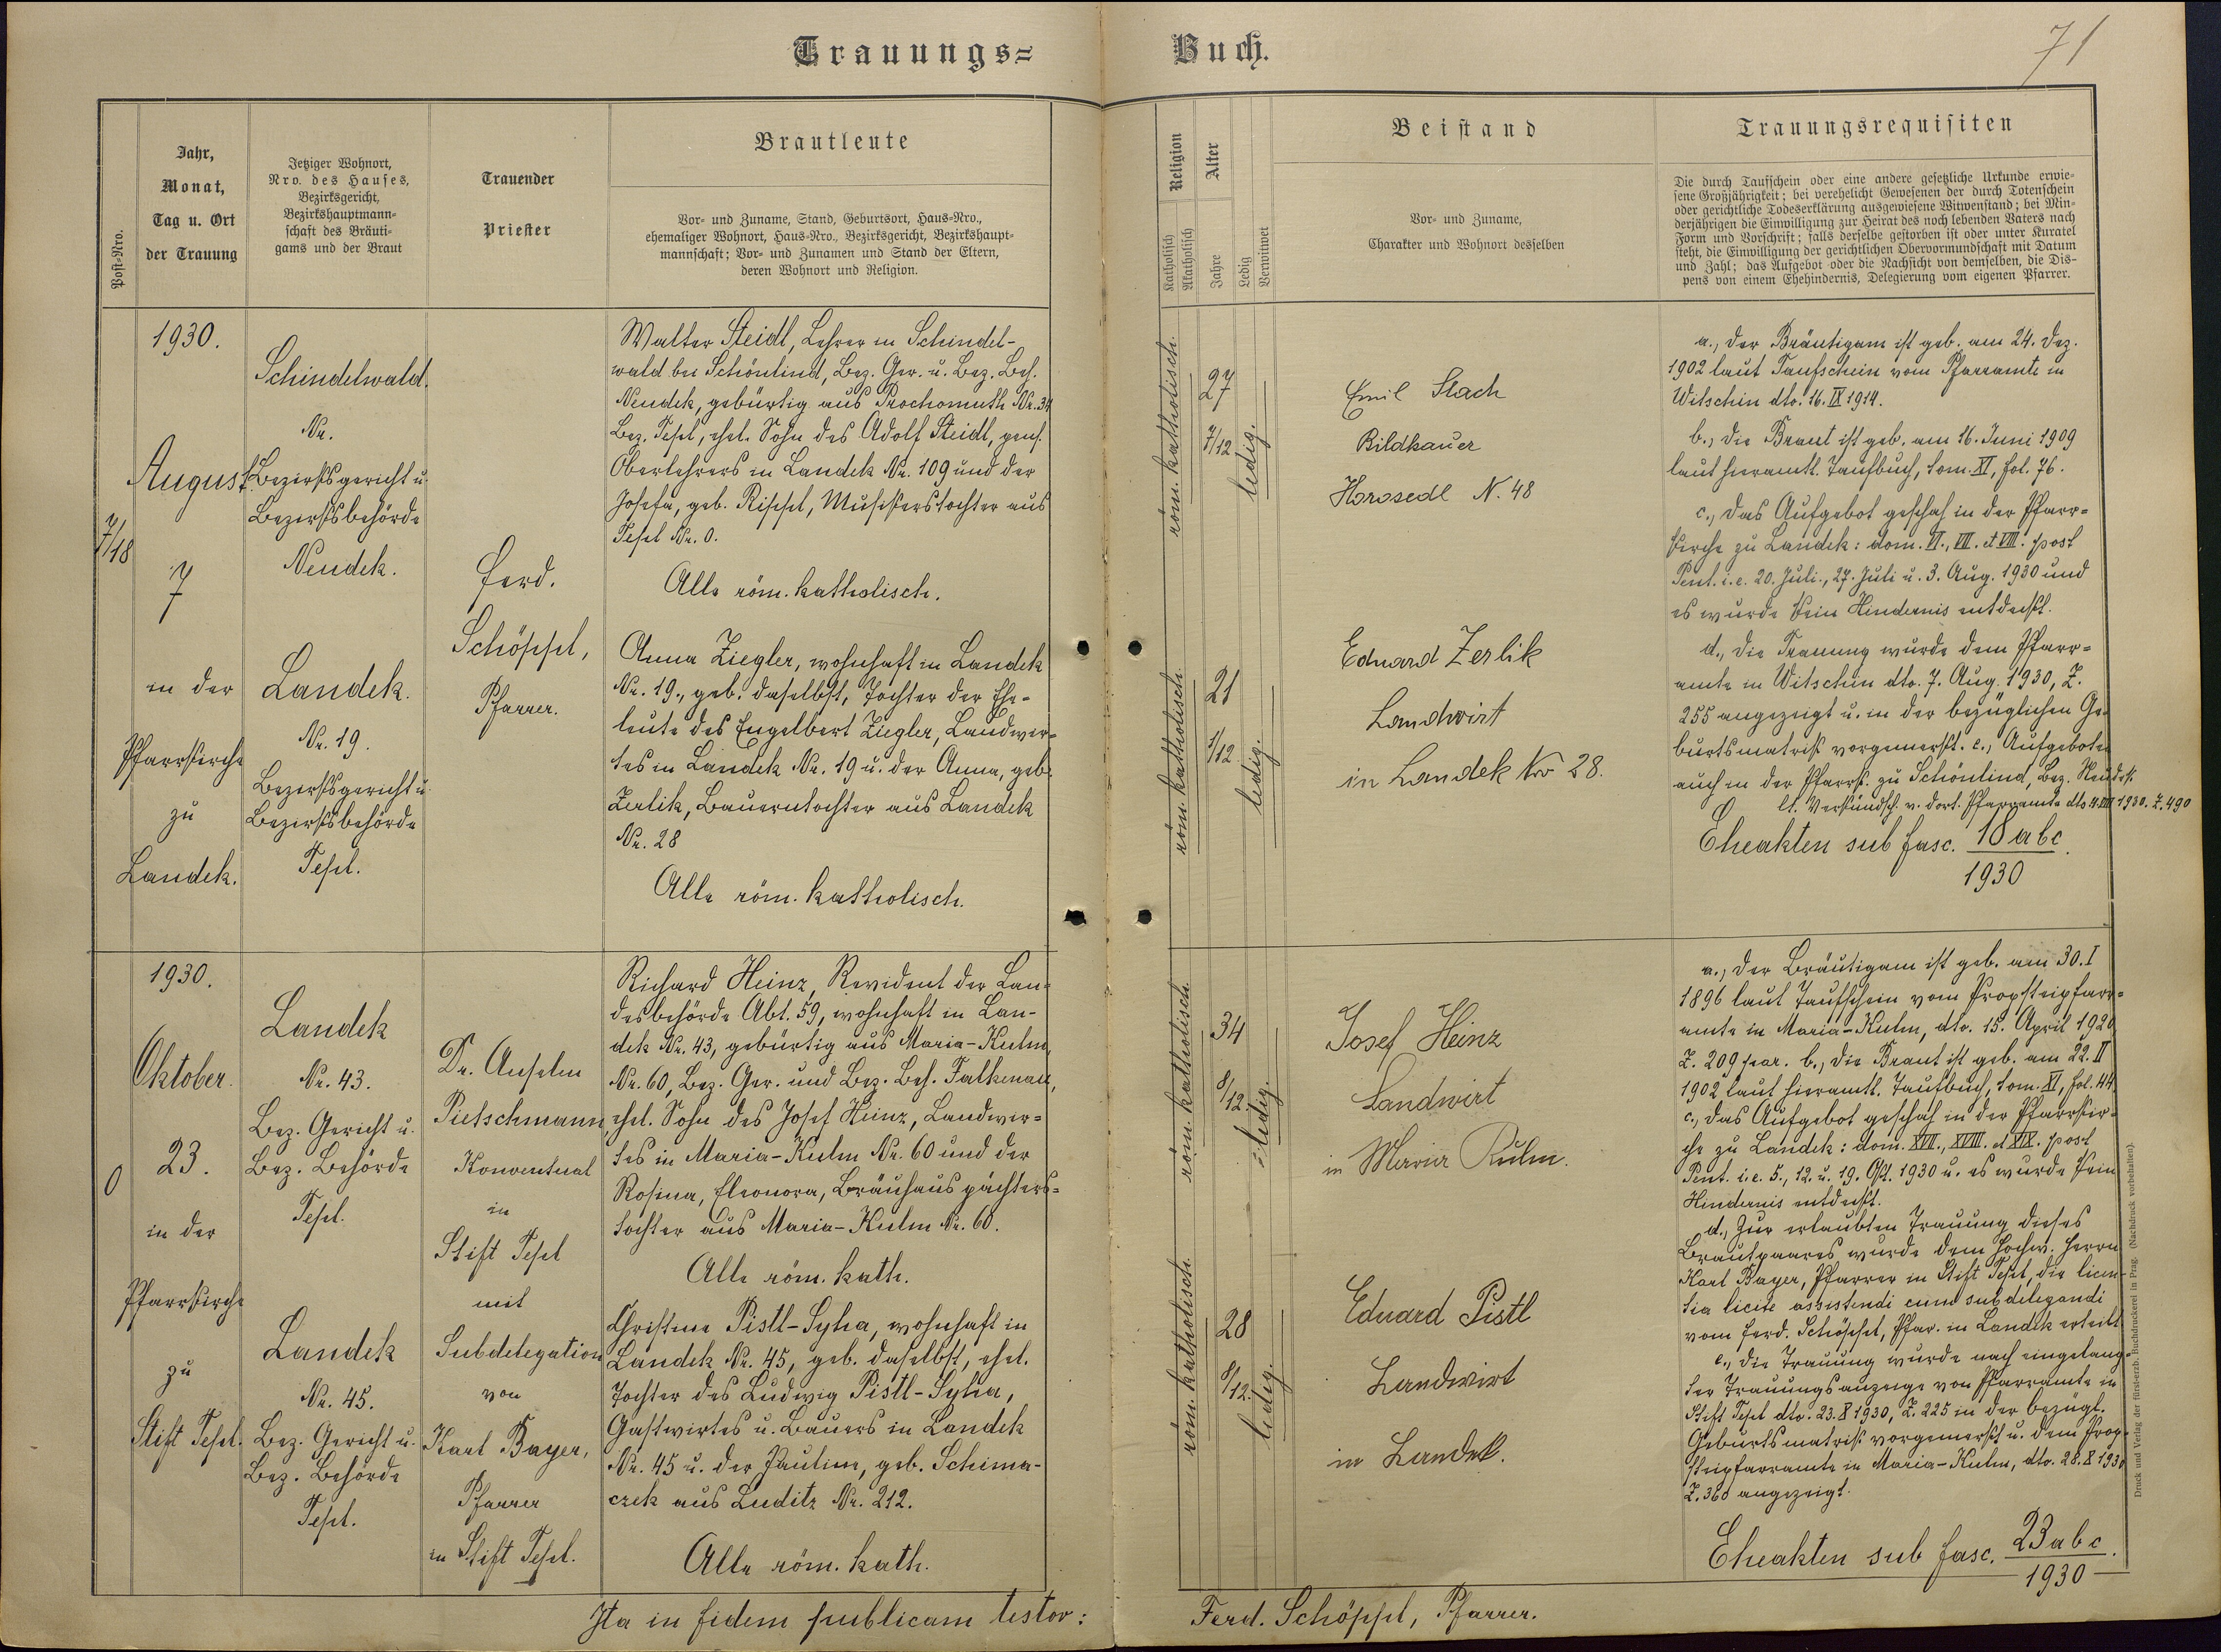 Trauungs=
Buch.
71
Post-Nro.
Jahr,
Monat,
Tag u. Ort
der Trauung
Jetziger Wohnort,
Nro. des Hauses,
Bezirksgericht,
Bezirkshauptmann=
schaft des Bräuti=
gams und der Braut
Trauender
Priester
Brautleute
Vor= und Zuname, Stand, Geburtsort, Haus=Nro.,
ehemaliger Wohnort, Haus=Nro., Bezirksgericht, Bezirkshaupt=
mannschaft; Vor= und Zunamen und Stand der Eltern,
deren Wohnort und Religion.
Religion
Katholisch
Akatholisch
Alter
Jahre
Ledig
Verwitwet
Beistand
Vor= und Zuname,
Charakter und Wohnort desselben
Trauungsrequisiten
Die durch Taufschein oder eine andere gesetzliche Urkunde erwie=
sene Großjährigkeit; bei verehelicht Gewesenen der durch Totenschein
oder gerichtliche Todeserklärung ausgewiesene Witwenstand; bei Min=
derjährigen die Einwilligung zur Heirat des noch lebenden Vaters nach
Form und Vorschrift; falls derselbe gestorben ist oder unter Kuratel
steht, die Einwilligung der gerichtlichen Obervormundschaft mit Datum
und Zahl; das Aufgebot oder die Nachsicht von demselben, die Dis=
pens von einem Ehehindernis, Delegierung vom eigenen Pfarrer.
7/18
1930.
August
7
in der
Pfarrkirche
zu
Landek.
Schindelwald.
Nr.
Bezirksgericht u.
Bezirksbehörde
Neudek.
Landek.
Nr. 19.
Bezirksgericht u.
Bezirksbehörde
Tepl.
Ferd.
Schöppl,
Pfarrer.
Walter Steidl, Lehrer in Schindel-
wald bei Schönlind, Bez. Ger. u. Bez. Beh.
Neudek, gebürtig aus Prochomuth Nr. 34
Bez. Tepl, ehel. Sohn des Adolf Steidl, pens.
Oberlehrers in Landek Nr. 109 und der
Josefa, geb. Rippl, Musikerstochter aus
Tepl Nr. 0.
Alle röm. katholisch.
Anna Ziegler, wohnhaft in Landek
Nr. 19., geb. daselbst, Tochter der Ehe=
leute des Engelbert Ziegler, Landwir=
tes in Landek Nr. 19 u. der Anna, geb.
Zerlik, Bauerntochter aus Landek
Nr. 28
Alle röm. katholisch.
röm. katholisch.
27
7/12
ledig.
röm. katholisch.
21
1/12
ledig.
Emil Stach
Bildhauer
Horosedl N. 48
Eduard Zerlik
Landwirt
in Landek Nro 28.
a., der Bräutigam ist geb. am 24. Dez.
1902 laut Taufschein vom Pfarramte in
Witschin dto. 16. IX 1914.
b., die Braut ist geb. am 16. Juni 1909
laut hieramtl. Taufbuch, tom. XI, fol. 76.
c., das Aufgebot geschah in der Pfarr=
kirche zu Landek: dom. VI., VII. et VIII. post
Pent. i. e. 20. Juli., 27. Juli u. 3. Aug. 1930 und
es wurde kein Hindernis entdeckt.
d., die Trauung wurde dem Pfarr=
amte in Witschin dto. 7. Aug. 1930, Z.
255 angezeigt u. in der bezüglichen Ge-
burtsmatrik vorgemerkt. e., Aufgeboten
auch in der Pfarrk. zu Schönlind, Bez. Neudek
lt. Verkündsch. v. dort. Pfarramte dto 4. VIII 1930. Z. 490
Eheakten sub fasc. 18 abc
1930
0
1930.
Oktober.
23.
in der
Pfarrkirche
zu
Stift Tepl.
Landek
Nr. 43.
Bez. Gericht u.
Bez. Behörde
Tepl.
Landek
Nr. 45.
Bez. Gericht u.
Bez. Behörde
Tepl.
Dr. Anselm
Pietschmann,
Konventual
in
Stift Tepl
mit
Subdelegation
von
Karl Bayer,
Pfarrer
in Stift Tepl.
Richard Heinz, Revident der Lan=
desbehörde Abt. 59, wohnhaft in Lan-
dek Nr. 43, gebürtig aus Maria-Kulm,
Nr. 60, Bez. Ger. und Bez. Beh. Falkenau,
ehel. Sohn des Josef Heinz, Landwir=
tes in Maria-Kulm Nr. 60 und der
Rosina, Eleonora, Bräuhauspächters=
tochter aus Maria-Kulm Nr. 60.
Alle röm. kath.
Christine Pistl-Syha, wohnhaft in
Landek Nr. 45, geb. daselbst, ehel.
Tochter des Ludwig Pistl-Syha,
Gastwirtes u. Bauers in Landek
Nr. 45 u. der Pauline, geb. Schima-
czek aus Luditz Nr. 212.
Alle röm. kath.
röm. katholisch.
34
8/12
ledig.
röm. katholisch.
28
8/12.
ledig.
Josef Heinz
Landwirt
in Maria Kulm.
Eduard Pistl
Landwirt
in Landek.
a., der Bräutigam ist geb. am 30. I
1896 laut Taufschein vom Propsteipfarr=
amte in Maria-Kulm, dto. 15. April 1920
Z. 209 par. b., die Braut ist geb. am 22. II
1902 laut hieramtl. Taufbuch, tom. XI, fol. 44.
c., das Aufgebot geschah in der Pfarrkir=
che zu Landek: dom. XVII., XVIII. et XIX. post
Pent. i. e. 5., 12. u. 19. Okt. 1930 u. es wurde kein
Hindernis entdeckt.
d., Zur erlaubten Trauung dieses
Brautpaares wurde dem hochw. Herrn
Karl Bayer, Pfarrer in Stift Tepl, die licen-
tia licite assistendi cum subdelegandi
vom Ferd. Schöppl, Pfar. in Landek erteilt
e., die Trauung wurde nach eingelang=
ter Trauungsanzeige von Pfarramte in
Stift Tepl dto. 23. X 1930, Z. 225 in der bezügl.
Geburtsmatrik vorgemerkt u. dem Prop-
steipfarramte in Maria-Kulm, dto. 28. X 1930
Z. 360 angezeigt.
Eheakten sub fasc. 23 abc.
1930
Druck und Verlag der fürst=erzb. Buchdruckerei in Prag. (Nachdruck vorbehalten).
Ita in fidem publicam testor:
Ferd. Schöppl, Pfarrer.